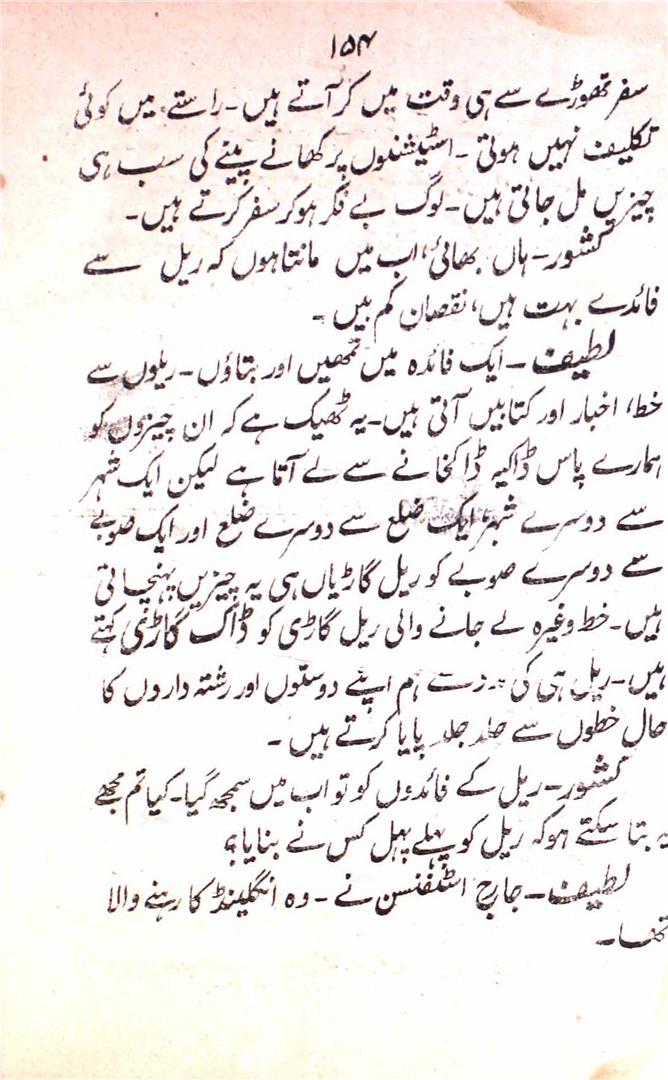 ۱۵۴
سفر تھوڑے سے ہی وقت میں کر آتے ہیں۔ راستے میں کوئی
تکلیف نہیں ہوتی۔ اسٹیشنوں پر کھانے پینے کی سب ہی
چیزیں مل جاتی ہیں۔ لوگ بے فکر ہو کر سفر کرتے ہیں۔
کشور۔ ہاں بھائی، اب میں مانتا ہوں کہ ریل سے
فائدے بہت ہیں، نقصان کم ہیں۔
لطیف۔ ایک فائدہ میں تمھیں اور بتاؤں۔ ریلوں سے
خط، اخبار اور کتابیں آتی ہیں۔ یہ ٹھیک ہے کہ ان چیزوں کو
ہمارے پاس ڈاکیہ ڈاکخانے سے لے آتا ہے لیکن ایک شہر
سے دوسرے شہر، ایک ضلع سے دوسرے ضلع اور ایک صوبے
سے دوسرے صوبے کو ریل گاڑیاں ہی یہ چیزیں پہنچاتی
ہیں۔ خط وغیرہ لے جانے والی ریل گاڑی کو ڈاک گاڑی کہتے
ہیں۔ ریل ہی کی مدد سے ہم اپنے دوستوں اور رشتہ داروں کا
حال خطوں سے جلد جلد پایا کرتے ہیں۔
کشور۔ ریل کے فائدوں کو تو اب میں سمجھ گیا۔ کیا تم مجھے
یہ بتا سکتے ہو کہ ریل کو پہلے پہل کس نے بنایا؟
لطیف۔ جارج اسٹفنسن نے۔ وہ انگلینڈ کا رہنے والا
تھا۔